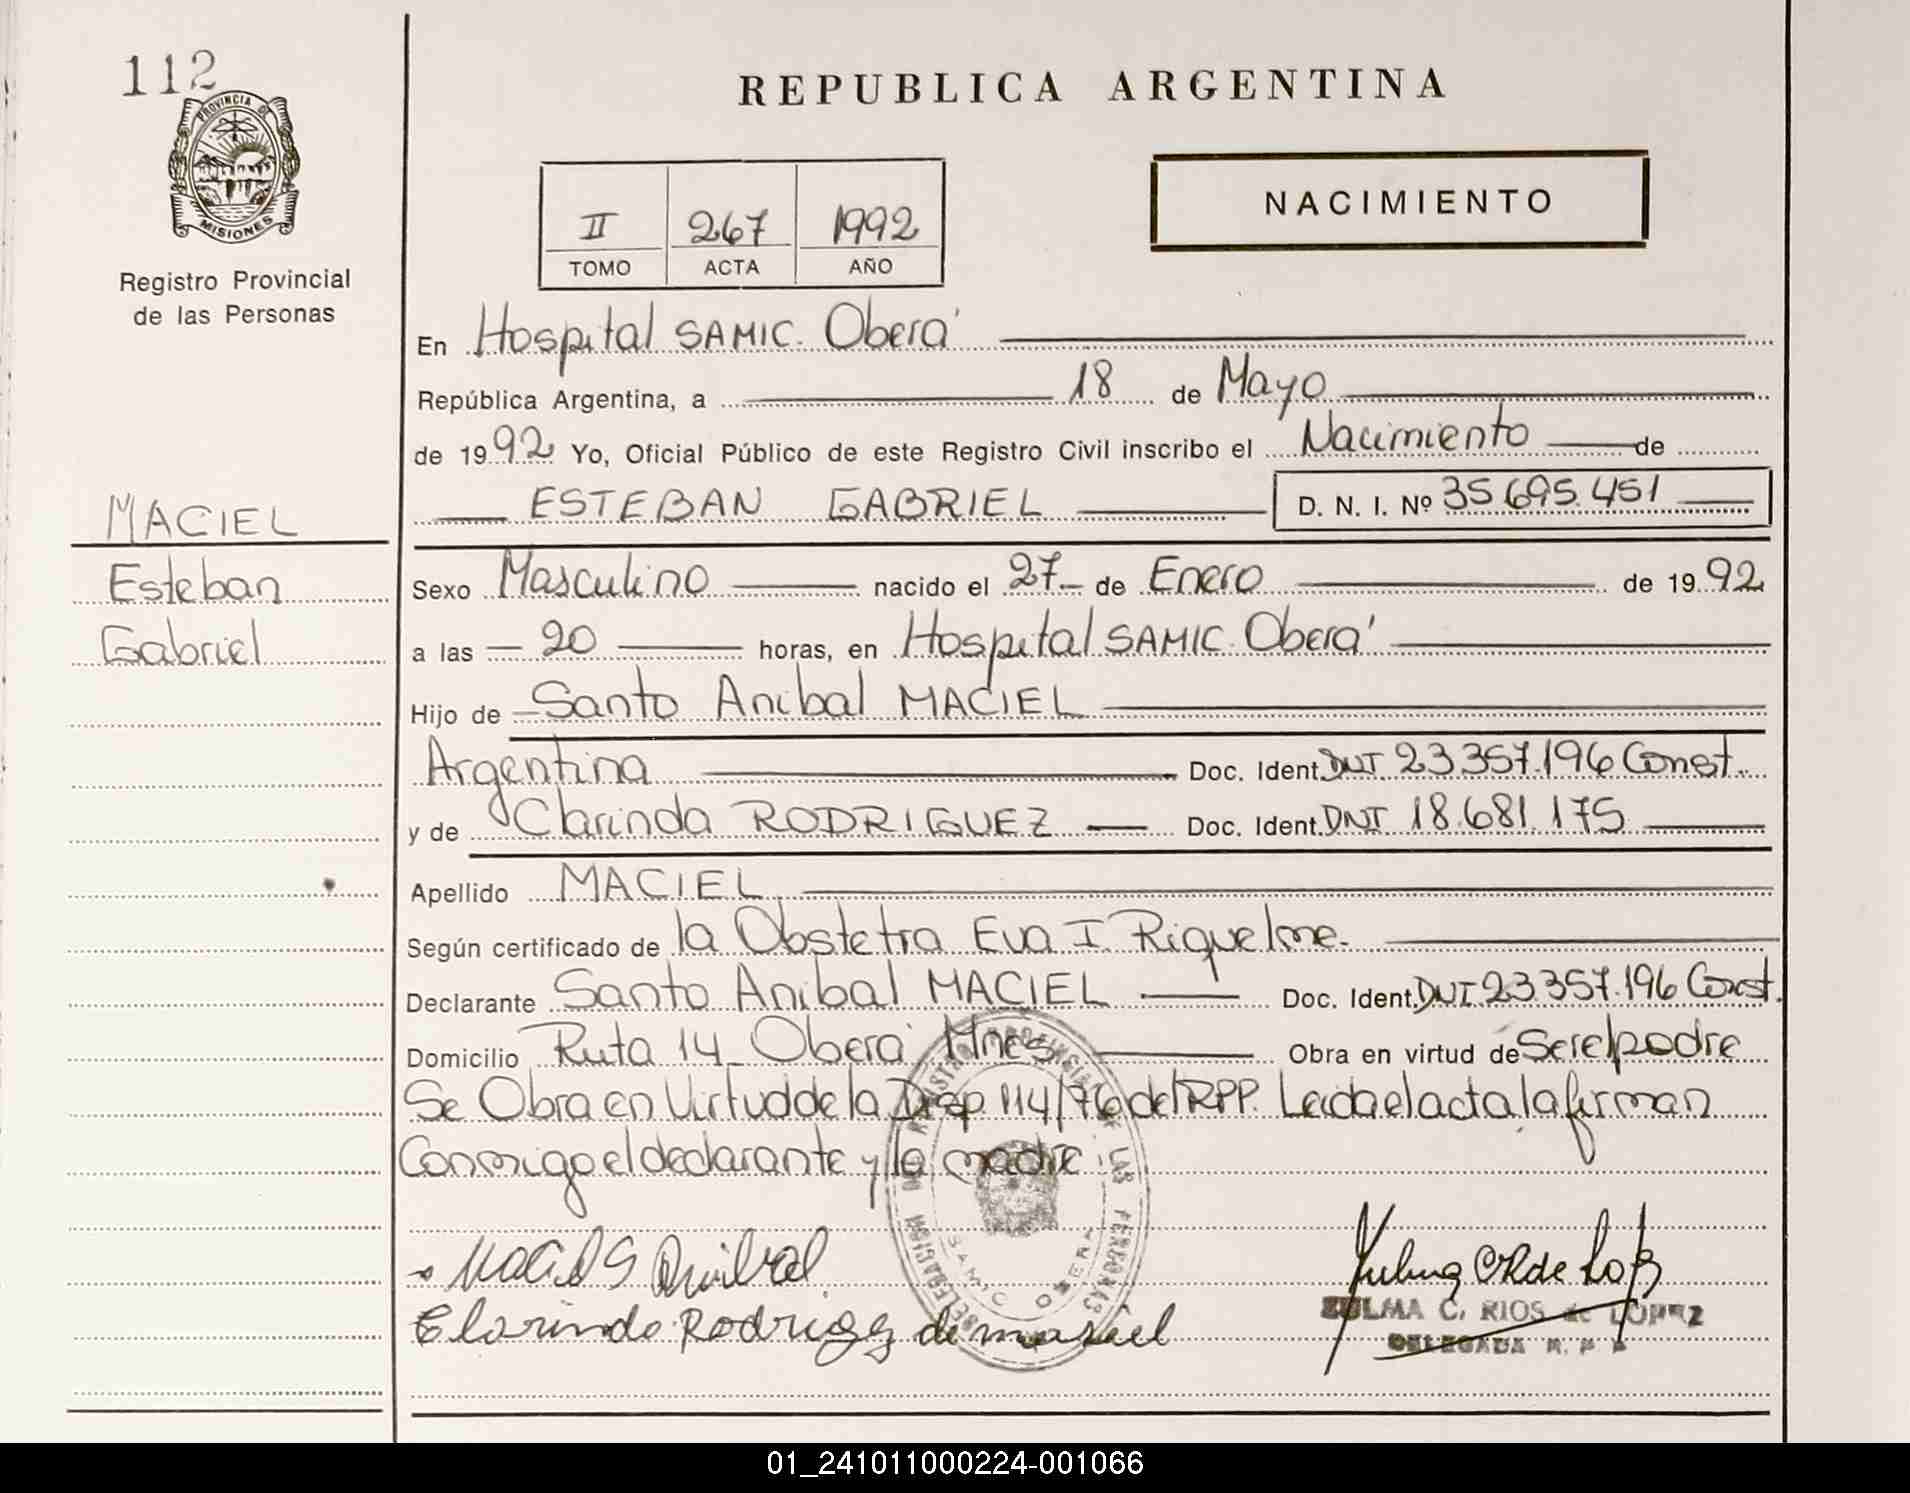 112
PROVINCIA DE
MISIONES
Registro Provincial
de las Personas
MACIEL
Esteban
Gabriel
REPUBLICA ARGENTINA
II 267 1992
TOMO ACTA AÑO
NACIMIENTO
En Hospital SAMIC. Oberá
República Argentina, a 18 de Mayo
de 1992 Yo, Oficial Público de este Registro Civil inscribo el Nacimiento de
ESTEBAN GABRIEL D. N. I. Nº 35.695.451
Sexo Masculino nacido el 27 de Enero de 1992
a las 20 horas, en Hospital SAMIC. Oberá
Hijo de Santo Anibal MACIEL
Argentina Doc. Ident. DNI 23.357.196 Const.
y de Clarinda RODRIGUEZ Doc. Ident. DNI 18.681.175
Apellido MACIEL
Según certificado de la Obstetra Eva I. Riquelme.
Declarante Santo Anibal MACIEL Doc. Ident. DNI 23.357.196 Const.
Domicilio Ruta 14 Oberá Mnes Obra en virtud de Ser el padre
Se Obra en Virtud de la Disp. 114/76 del RPP. Leida el acta la firman
Conmigo el declarante y la madre.
DELEGACION DEL REGISTRO PROVINCIAL DE LAS PERSONAS
SAMIC OBERA
Maciel S Anibal
Clarindo Rodrigez de masiel
ZULMA C. RIOS de LOPEZ
DELEGADA R. P. P.
01_241011000224-001066